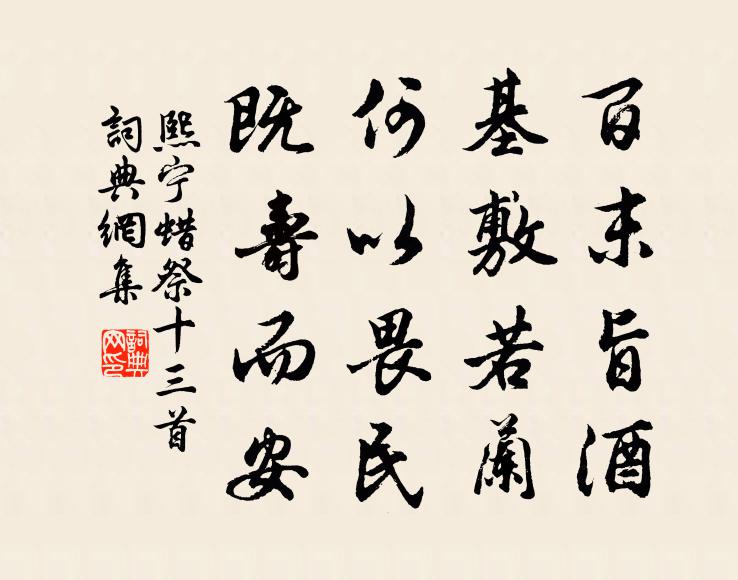 百末旨酒
基敷若蘭
何以畏民
既壽而安
熙宁蜡祭十三首
詞典網集
詞典網印